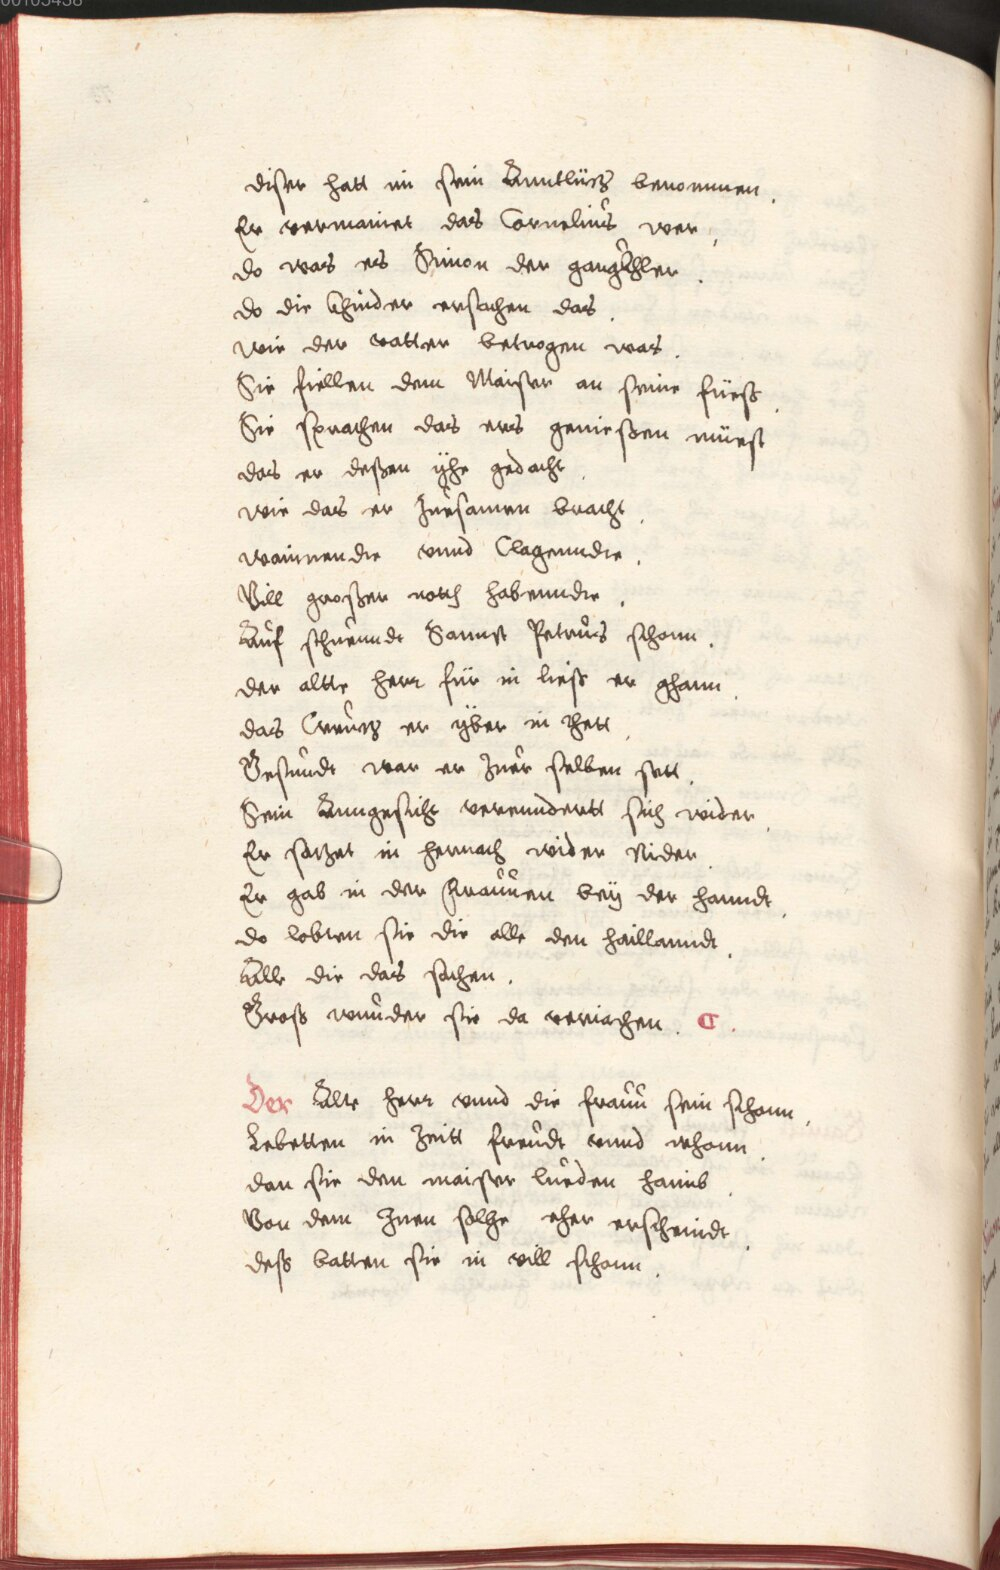 diser hatt im sein Anntlücz benommen.
Er vermainet das Cornelius wer,
do was es Simon der gaugkhler.
do die Khinder ersachen das.
wie der vatter betrogen was.
Sie fiellen dem Maister an seine füess.
Sie sprachen das ers geniessen müest
das er dessen yhe gedacht.
wie das er Zuesamen bracht.
wainnendie vnnd Clagenndie.
Vill grosser noth habenndie.
Auf schuennde Sannt Petrus schonn.
der altte herr für in liess er ghann.
das Creucz er yber in thett.
Gesundt war er Zuer selben stett.
Sein Anngesicht verenndertt sich wider.
Er sachet in hernach wider Nider.
Er gab in der Frauuen bey der hanndt.
do lobten sie die alle den haillanndt.
Alle die das sachen.
Gross wunder sie da veriachen. C.
Der Alte herr vnnd die frauu sein schonn.
Lebetten in Zeitt freudt vnnd whonn.
dan sie den maister lueden haimb.
Von dem Inen solche eher erscheindt.
dess batten sie in vill schonn.